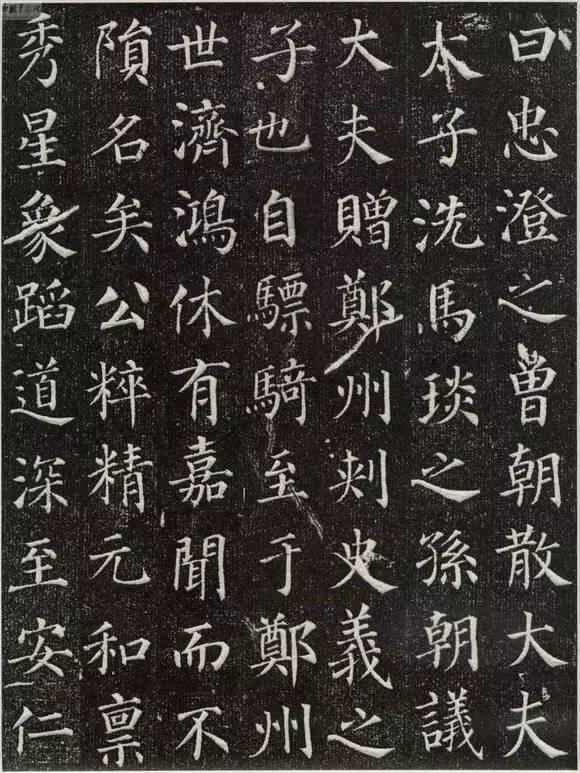 曰忠澄之曽朝散大夫
太子洗馬琰之孫朝議
大夫贈鄭州刺史義之
子也自驃騎至于鄭州
世濟鴻休有嘉聞而不
隕名矣公粹精元和禀
秀星象蹈道深至安仁